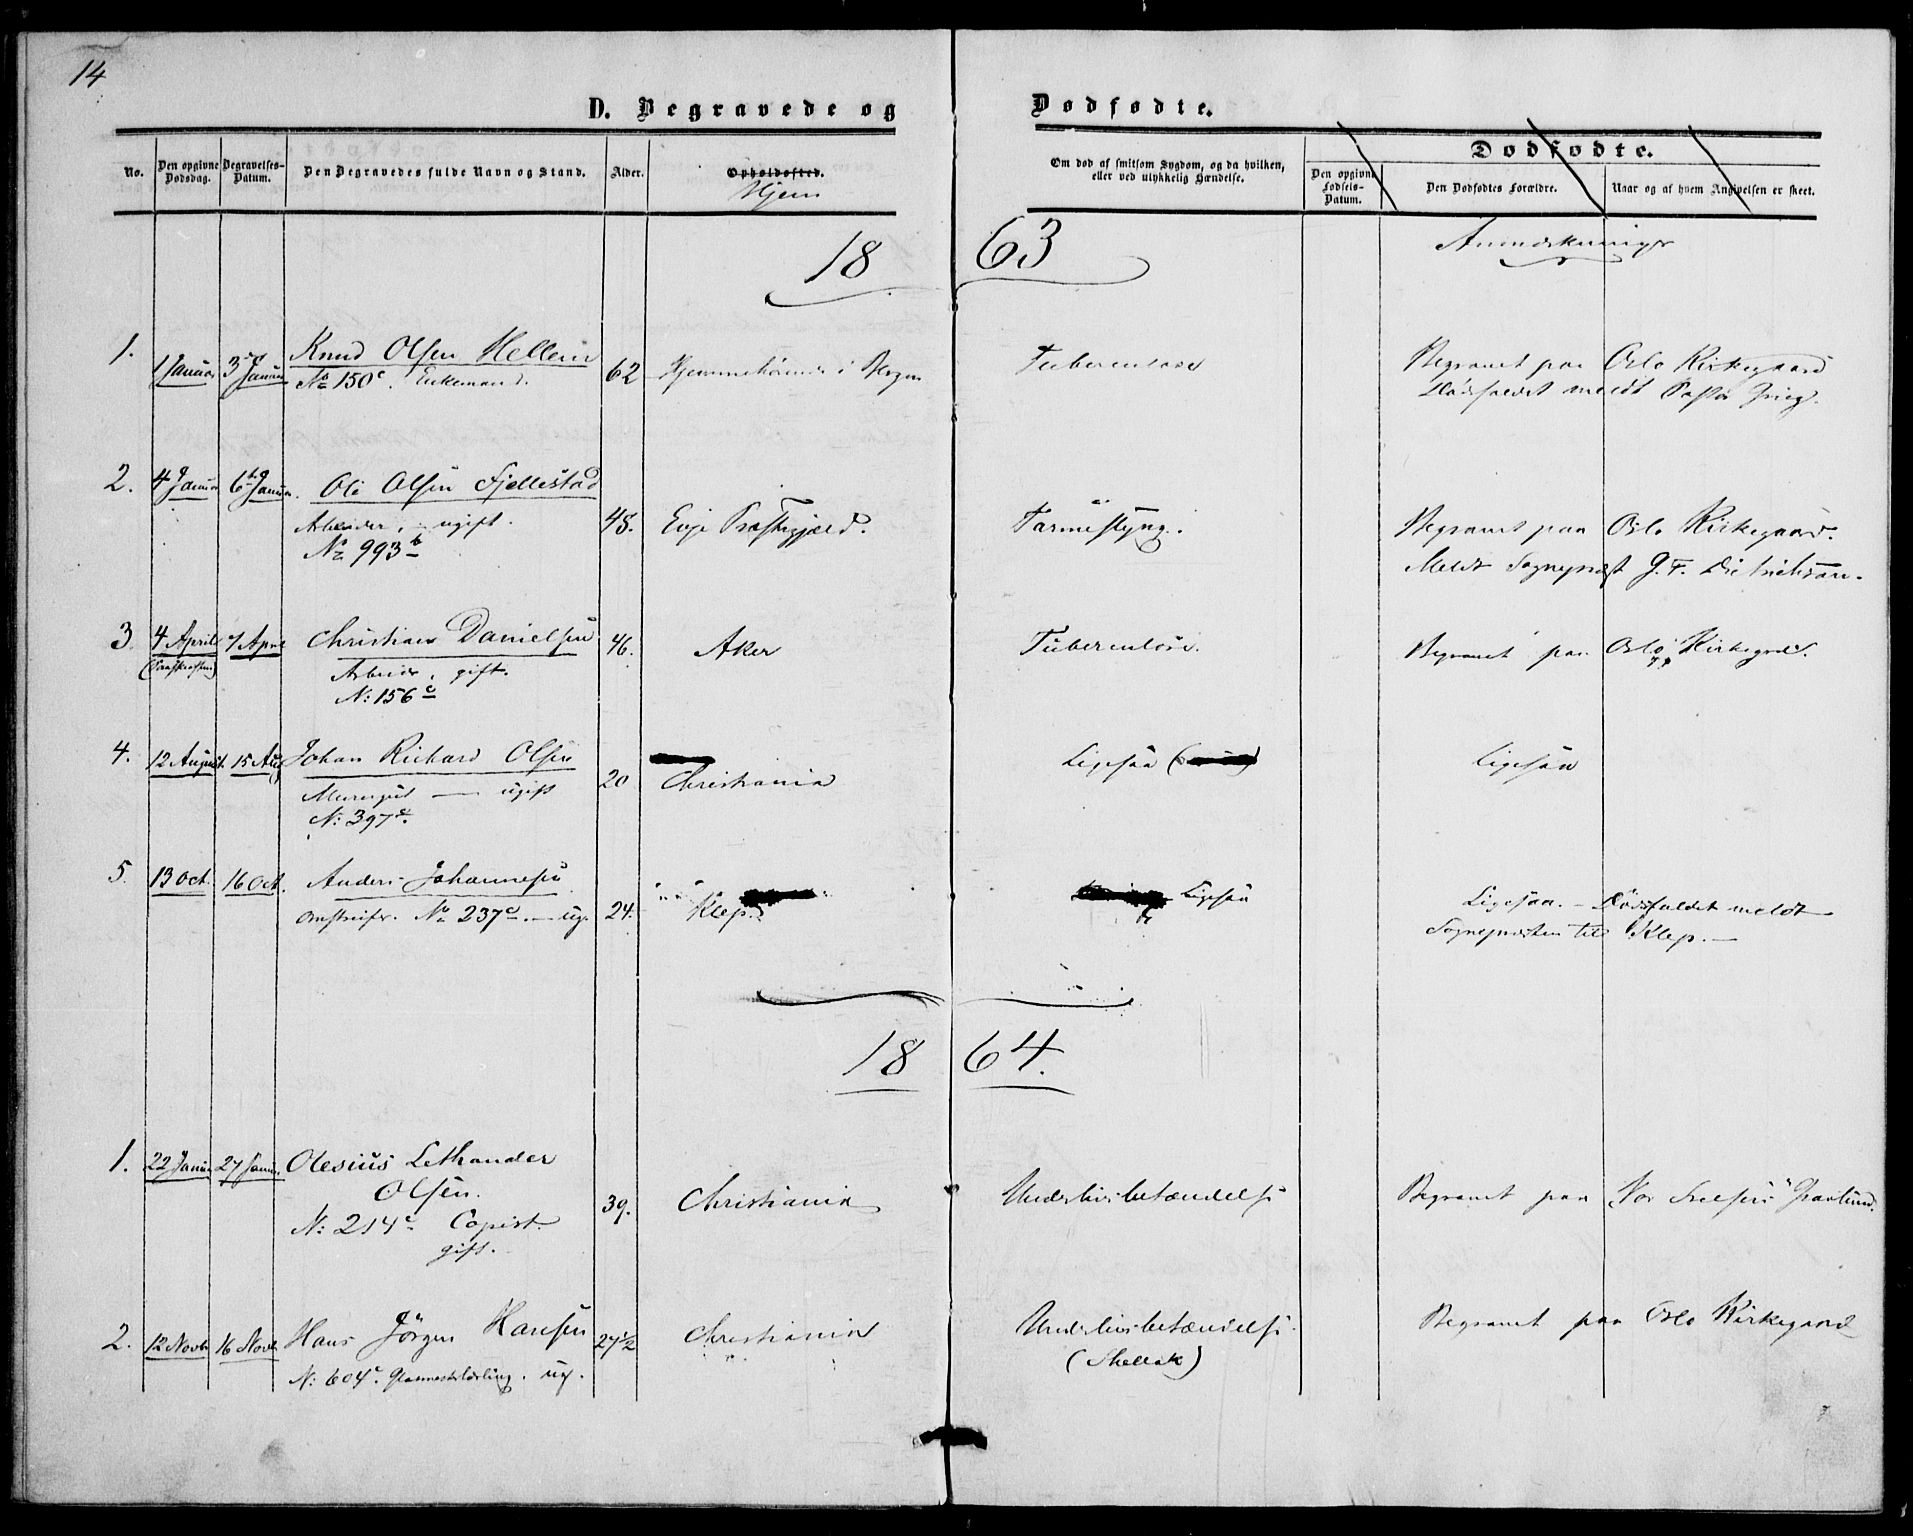 14
D. Begravede og Dødfødte.
No.
Den opgivne Dødsdag.
Begravelses-Datum.
Den Begravedes fulde Navn og Stand.
Alder.
Opholdssted.
Hjem
Om død af smitsom Sygdom, og da hvilken,
eller ved ulykkelig Hændelse.
Dødfødte.
Den opgivne Fødsels-Datum.
Den Dødfødtes Forældre.
Naar og af hvem Angivelsen er skeet.
1863
Anmærkninger
1. 1 Januar 3 Januar Knud Olsen
No 150c. Enkemand. 62 Hjemmehørende i Tuberculose Begravet paa Oslo Kirkegaard
Dødsfaldet meldt Pastor
2. 4 Januar 6 Januar. Ole Olsen Fjellestad
Arbeider, ugift. 48. Evje Præstegjæld. Begravet paa Oslo Kirkegaard.
No 993b Meldt Sognepræst G. F. Dietrichson.
3 4 April 7 April Christian Danielsen 46. Aker Tuberculose. Begravet paa Oslo Kirkegrd.
Arbeider, gift.
N: 156c
4. 12 August. 15 Aug Johan Richard Olsen Ligesaa Ligesaa
ugift 20 Christiania
N: 397c.
5. 13 Oct. 16 Oct. Anders Johannesen
No 237c. — ug. 24. Klep. Ligesaa Ligesaa. — Dødsfaldet meldt
Sognepræsten til Klep. —
1864.
1. 22 Januar 27 Januar Olesius Lethander
Olsen. 39. Christiania Underlivsbetændelse Begravet paa Vor Frelsers Gravlund.
N: 214c Copist.
gift.
2. 12 Novb 16 Novb. Hans Jörgen Hansen 27½ Christiania Underlivsbetændelse. Begravet paa Oslo Kirkegaard
N: 604c. ug.